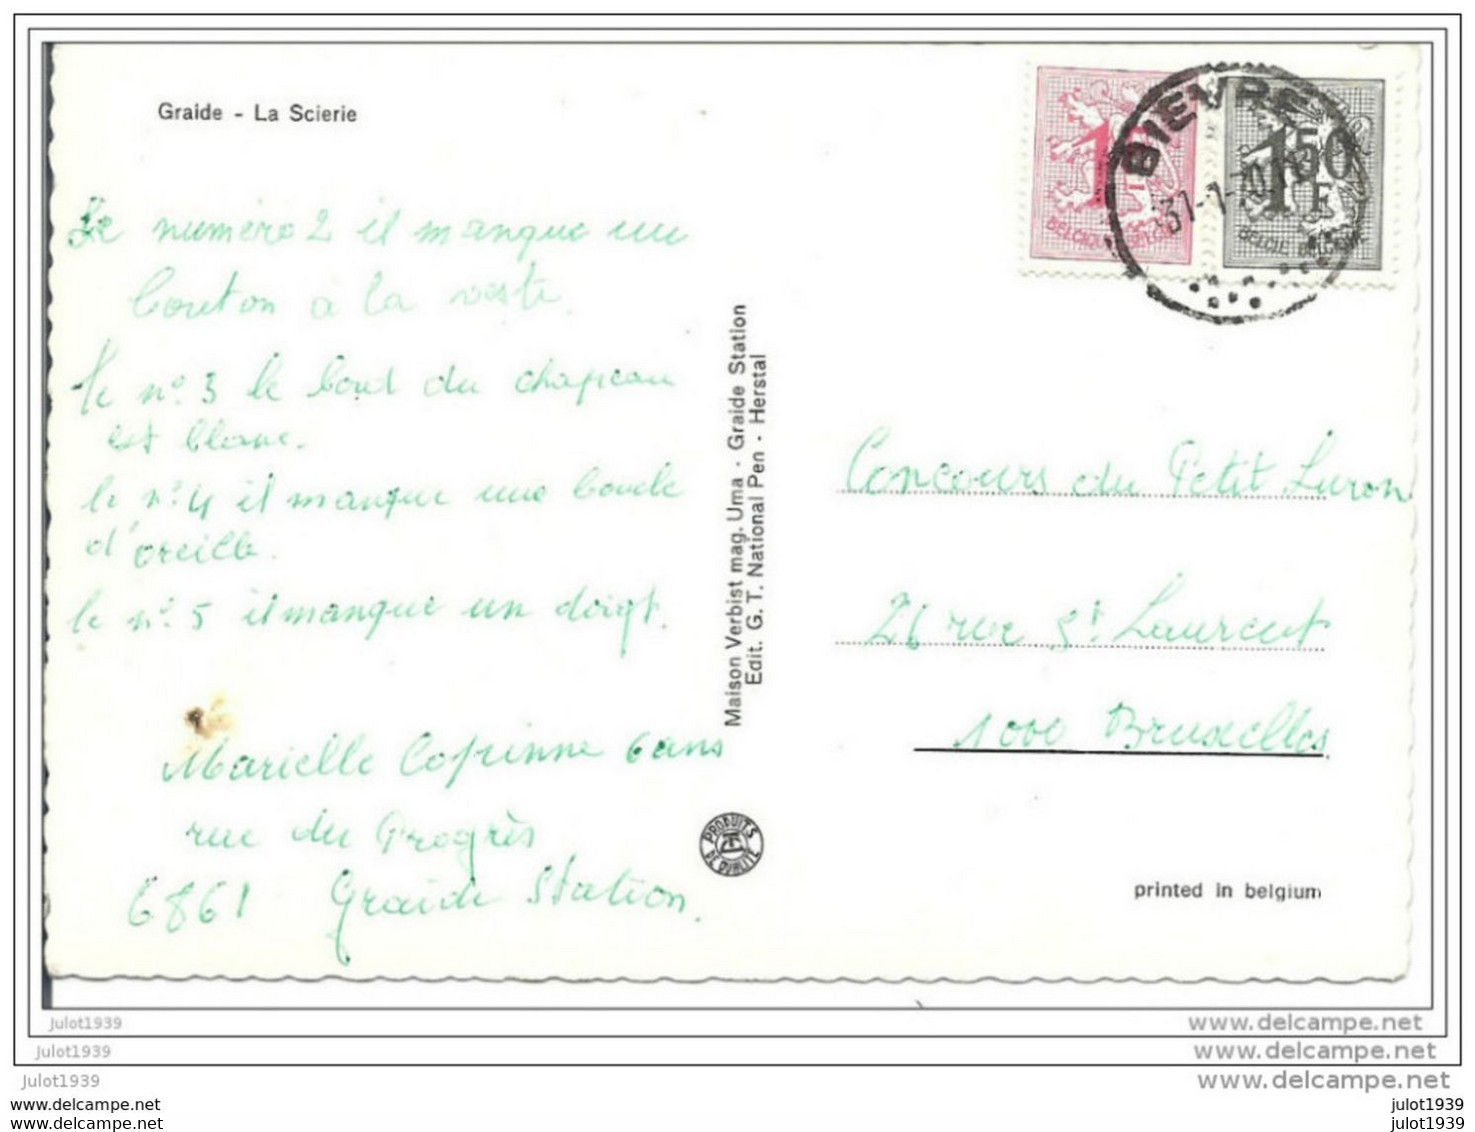 Graide - La Scierie
Le numéro 2 il manque un
bouton à la veste.
le n° 3 le bord du chapeau
est blanc.
le n° 4 il manque une boucle
d'oreille.
le n° 5 il manque un doigt.
Marielle 6 ans
rue du Progrès
6861 Graide Station.
Maison Verbist mag. Uma - Graide Station
Edit. G. T. National Pen - Herstal
PRODUITS
DE QUALITE
1F
BELGIQUE BELGIE
1F50
BELGIE BELGIQUE
BIEVRE
Concours du Petit Luron
26 rue St Laurent
1000 Bruxelles
printed in belgium
julot1939
www.delcampe.net
julot1939
www.delcampe.net
julot1939
www.delcampe.net
www.delcampe.net
julot1939
julot1939
julot1939